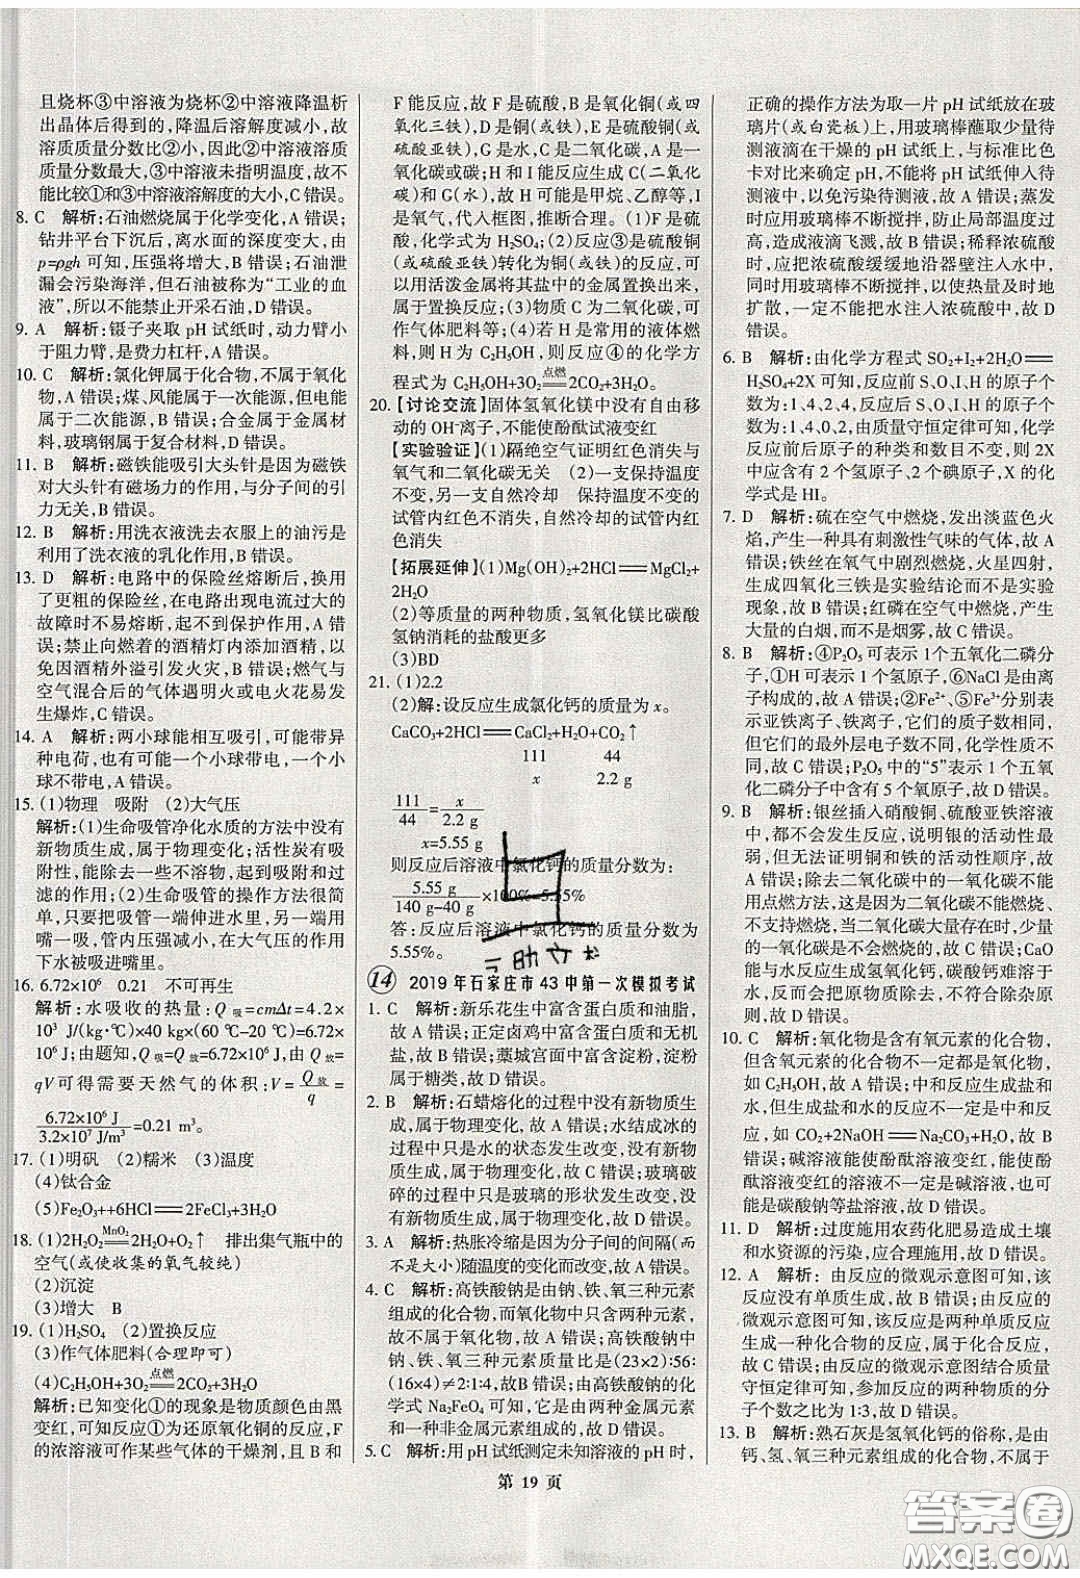 且烧杯③中溶液为烧杯②中溶液降温析
出晶体后得到的,降温后溶解度减小,故
溶质质量分数比②小,因此②中溶液溶质
质量分数最大。③中溶液未指明温度,故不
能比较①和③中溶液溶解度的大小,C错误。
8. C 解析:石油燃烧属于化学变化,A错误;
钻井平台下沉后,离水面的深度变大,由
p=ρgh可知,压强将增大,B错误;石油泄
漏会污染海洋,但石油被称为“工业的血
液”,所以不能禁止开采石油,D错误。
9. A 解析:镊子夹取pH试纸时,动力臂小
于阻力臂,是费力杠杆,A错误。
10. C 解析:氯化钾属于化合物,不属于氧化
物,A错误;煤、风能属于一次能源,但电能
属于二次能源,B错误;合金属于金属材
料,玻璃钢属于复合材料,D错误。
11. B 解析:磁铁能吸引大头针是因为磁铁
对大头针有磁场力的作用,与分子间的引
力无关,B错误。
12. B 解析:用洗衣液洗去衣服上的油污是
利用了洗衣液的乳化作用,B错误。
13. D 解析:电路中的保险丝熔断后,换用
了更粗的保险丝,在电路出现电流过大的
故障时不易熔断,起不到保护作用,A错
误;禁止向燃着的酒精灯内添加酒精,以
免因酒精外溢引发火灾,B错误;燃气与
空气混合后的气体遇明火或电火花易发
生爆炸,C错误。
14. A 解析:两小球能相互吸引,可能带异
种电荷,也有可能一个小球带电,一个小
球不带电,A错误。
15. (1)物理 吸附 (2)大气压
解析:(1)生命吸管净化水质的方法中没有
新物质生成,属于物理变化;活性炭有吸
附性,能除去一些不溶物,起到吸附和过
滤的作用;(2)生命吸管的操作方法很简
单,只要把吸管一端伸进水里,另一端用
嘴一吸,管内压强减小,在大气压的作用
下水被吸进嘴里。
16. 6.72×10⁶ 0.21 不可再生
解析:水吸收的热量:Q吸=cmΔt=4.2×
10³ J/(kg·℃)×40 kg×(60 ℃-20 ℃)=6.72×
10⁶ J;由题知,Q吸=Q放=6.72×10⁶ J,由Q放=
qV可得需要天然气的体积:V=Q放/q=
6.72×10⁶ J/3.2×10⁷ J/m³=0.21 m³。
17. (1)明矾 (2)糯米 (3)温度
(4)钛合金
(5)Fe₂O₃+6HCl══2FeCl₃+3H₂O
18. (1)2H₂O₂══MnO₂══2H₂O+O₂↑ 排出集气瓶中的
空气(或使收集的氧气较纯)
(2)沉淀
(3)增大 B
19. (1)H₂SO₄ (2)置换反应
(3)作气体肥料(合理即可)
(4)C₂H₅OH+3O₂══点燃══2CO₂+3H₂O
解析:已知变化①的现象是物质颜色由黑
变红,可知变化①为还原氧化铜的反应,F
的浓溶液可作某些气体的干燥剂,且B和
F能反应,故F是硫酸,B是氧化铜(或四
氧化三铁),D是铜(或铁),E是硫酸铜(或
硫酸亚铁),G是水;反应②生成C(二氧化
碳)和G(水),故H可能是甲烷、乙醇等,I
是氧气,代入框图,推断合理。(1)F是硫
酸,化学式为H₂SO₄;(2)反应③是硫酸铜
(或硫酸亚铁)转化为铜(或铁)的反应,可
以用活泼金属将其盐中的金属置换出来,
属于置换反应;(3)物质C为二氧化碳,可
作气体肥料等;(4)若H是常用的液体燃
料,则H为C₂H₅OH,则反应④的化学方
程式为C₂H₅OH+3O₂══点燃══2CO₂+3H₂O。
20. 【讨论交流】固体氢氧化镁中没有自由移
动的OH⁻离子,不能使酚酞试液变红
【实验验证】(1)隔绝空气证明红色消失与
氧气和二氧化碳无关 (2)一支保持温度
不变,另一支自然冷却 保持温度不变的
试管内红色不消失,自然冷却的试管内红
色消失
【拓展延伸】(1)Mg(OH)₂+2HCl══MgCl₂+
2H₂O
(2)等质量的两种物质,氢氧化镁比碳酸
氢钠消耗的盐酸更多
(3)BD
21. (1)2.2
(2)解:设反应生成氯化钙的质量为x。
CaCO₃+2HCl══CaCl₂+H₂O+CO₂↑
111 44
x 2.2 g
111/44=x/2.2 g
x=5.55 g
则反应后溶液中氯化钙的质量分数为:
5.55 g/140 g-40 g×100%=5.55%
答:反应后溶液中氯化钙的质量分数为
5.55%。
14 2019年石家庄市43中第一次模拟考试
1. C 解析:新乐花生中富含蛋白质和油脂,
故A错误;正定卤鸡中富含蛋白质和无机
盐,故B错误;藁城宫面中富含淀粉,淀粉
属于糖类,故D错误。
2. B 解析:石蜡熔化的过程中没有新物质生
成,属于物理变化,故A错误;水结成冰的
过程中只是水的状态发生改变,没有新物
质生成,属于物理变化,故C错误;玻璃破
碎的过程中只是玻璃的形状发生改变,没
有新物质生成,属于物理变化,故D错误。
3. A 解析:热胀冷缩是因为分子间的间隔(而
不是大小)随温度的变化而改变,故A错误。
4. C 解析:高铁酸钠是由钠、铁、氧三种元素
组成的化合物,而氧化物中只含两种元素,
故不属于氧化物,故A错误;高铁酸钠中
钠、铁、氧三种元素质量比是(23×2)∶56∶
(16×4)≠2∶1∶4,故B错误;由高铁酸钠的化
学式Na₂FeO₄可知,它是由两种金属元素
和一种非金属元素组成的,故D错误。
5. C 解析:用pH试纸测定未知溶液的pH时,
正确的操作方法为取一片pH试纸放在玻
璃片(或白瓷板)上,用玻璃棒蘸取少量待
测液滴在干燥的pH试纸上,与标准比色
卡对比来确定pH,不能将pH试纸伸入待
测液中,以免污染待测液,故A错误;蒸发
时应用玻璃棒不断搅拌,防止局部温度过
高,造成液滴飞溅,故B错误;稀释浓硫酸
时,应把浓硫酸缓缓地沿器壁注入水中,
同时用玻璃棒不断搅拌,以使热量及时地
扩散,一定不能把水注入浓硫酸中,故D
错误。
6. B 解析:由化学方程式SO₂+I₂+2H₂O══
H₂SO₄+2X可知,反应前S、O、I、H的原子个
数为:1、4、2、4,反应后S、O、I、H的原子个
数为:1、4、0、2,由质量守恒定律可知,化学
反应前后原子的种类和数目不变,则2X
中应含有2个氢原子、2个碘原子,X的化
学式是HI。
7. D 解析:硫在空气中燃烧,发出淡蓝色火
焰,产生一种具有刺激性气味的气体,故
A错误;铁丝在氧气中剧烈燃烧,火星四射,
生成四氧化三铁是实验结论而不是实验
现象,故B错误;红磷在空气中燃烧,产生
大量的白烟,而不是烟雾,故C错误。
8. B 解析:④P₂O₅可表示1个五氧化二磷分
子,①H可表示1个氢原子,⑥NaCl是由离
子构成的,故A错误;②Fe²⁺、⑤Fe³⁺分别表
示亚铁离子、铁离子,它们的质子数相同,
但它们的最外层电子数不同,化学性质不
同,故C错误;P₂O₅中的“5”表示1个五氧
化二磷分子中含有5个氧原子,故D错误。
9. B 解析:银丝插入硝酸铜、硫酸亚铁溶液
中,都不会发生反应,说明银的活动性最
弱,无法证明铜和铁的活动性顺序,故A
错误;除去二氧化碳中的一氧化碳不能
用点燃方法,这是因为当二氧化碳大量存
在时,少量的一氧化碳不能燃烧,且若通
入氧气会引入新的杂质,故C错误;CaO
能与水反应生成氢氧化钙,碳酸钙难溶于
水,不但能把原物质除去,还不符合除杂
原则,故D错误。
10. C 解析:氧化物是含有氧元素的化合物,
但含氧元素的化合物不一定都是氧化物,
如H₂CO₃等,故A错误;中和反应生成盐和
水,但生成盐和水的反应不一定是中和反
应,如CO₂+2NaOH══Na₂CO₃+H₂O,故B
错误;碱溶液能使酚酞溶液变红,而能使酚
酞溶液变红的溶液不一定是碱溶液,可能
是碳酸钠等盐溶液,故D错误。
11. D 解析:过度施用农药化肥易造成土壤
和水资源的污染,应合理施用,故D错误。
12. A 解析:由反应的微观示意图可知,该
反应没有单质生成,故B错误;由反应的
微观示意图可知,该反应是两种单质反应
生成一种化合物的反应,属于化合反应,
故C错误;由反应的微观示意图结合质量
守恒定律可知,参加反应的两种物质的分
子个数之比为1∶3,故D错误。
13. B 解析:熟石灰是氢氧化钙的俗称,是由
钙、氢、氧三种元素组成的化合物,不属于
第 19 页
答案圈
MXQE.COM